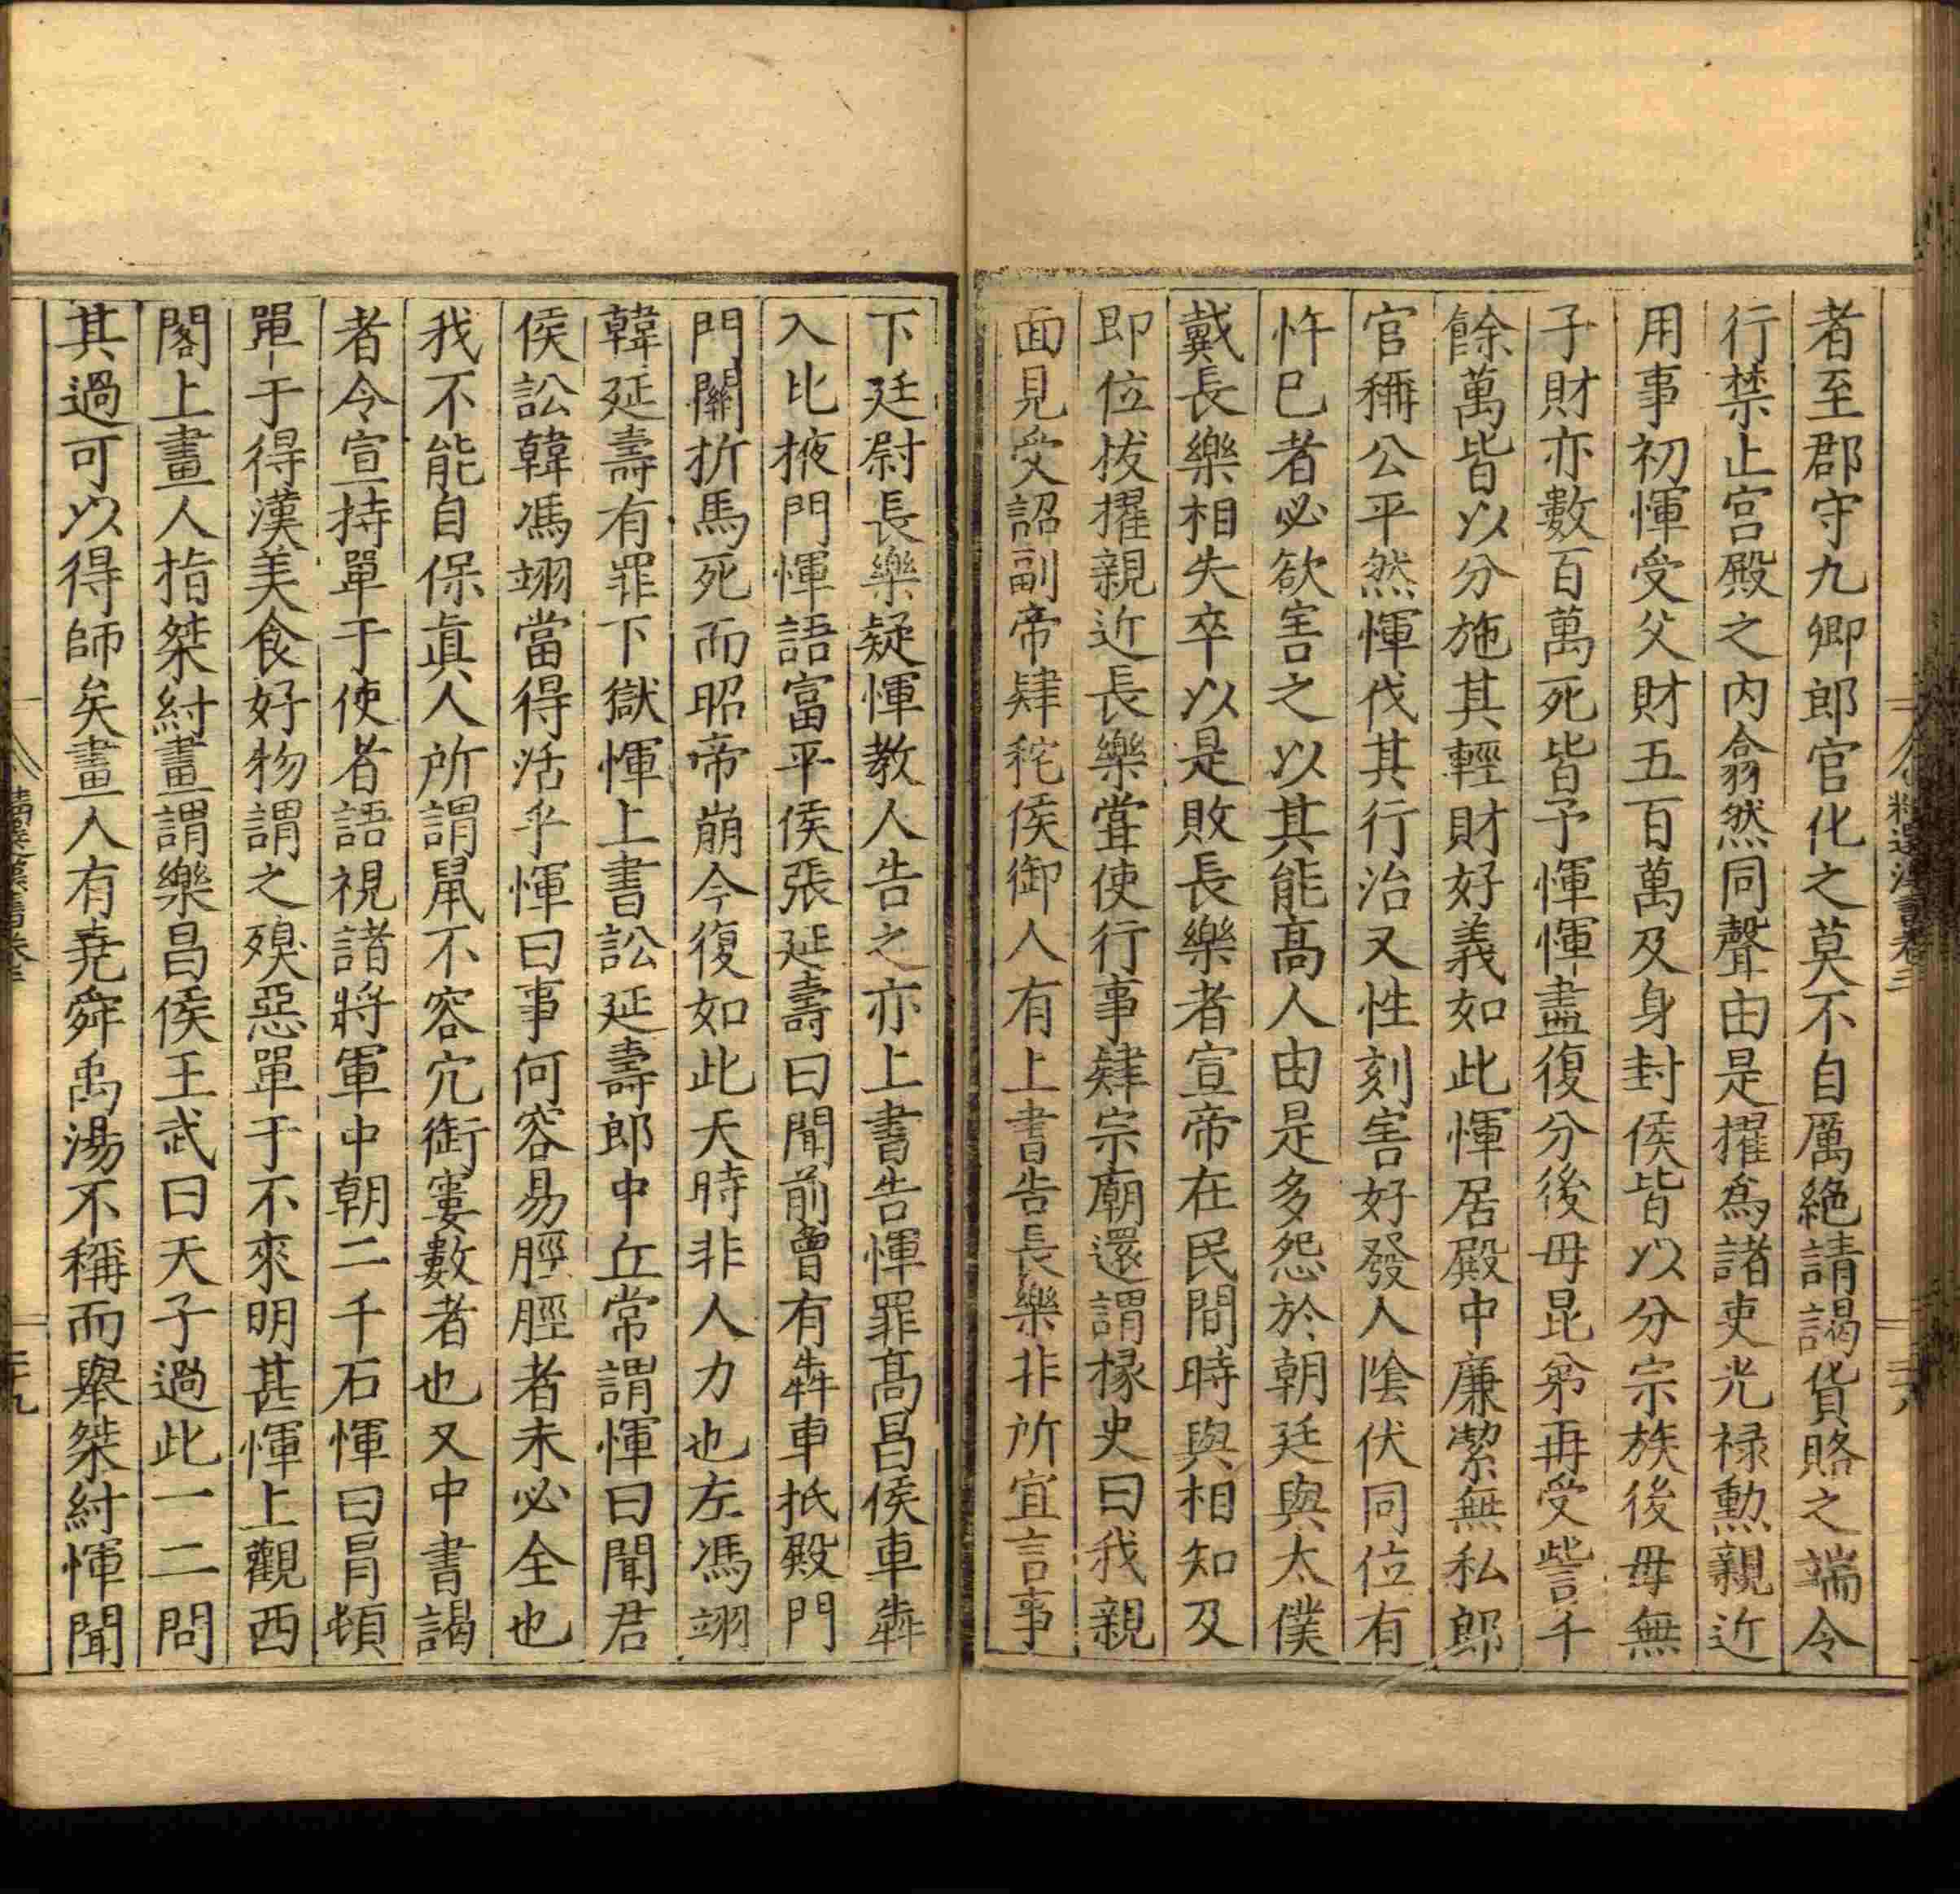 者至郡守九卿郎官化之莫不自厲絶請謁貨賂之端令
行禁止宫殿之内翕然同聲由是擢爲諸吏光禄勲親近
用事初惲受父財五百萬及身封侯皆以分宗族後母無
子財亦數百萬死皆予惲惲盡復分後母昆弟再受訾千
餘萬皆以分施其輕財好義如此惲居殿中廉潔無私郎
官稱公平然惲伐其行治又性刻害好發人陰伏同位有
忤已者必欲害之以其能髙人由是多怨於朝廷與太僕
戴長樂相失卒以是敗長樂者宣帝在民間時與相知及
即位拔擢親近長樂甞使行事肄宗廟還謂掾史曰我親
面見受詔副帝肄秺侯御人有上書告長樂非所宜言事
下廷尉長樂疑惲教人告之亦上書告惲罪髙昌侯車犇
入北掖門惲語富平侯張延壽曰聞前曾有犇車抵殿門
門關折馬死而昭帝崩今復如此天時非人力也左馮翊
韓延壽有罪下獄惲上書訟延壽郎中丘常謂惲曰聞君
侯訟韓馮翊當得活乎惲曰事何容易脛脛者未必全也
我不能自保眞人所謂鼠不容穴銜窶數者也又中書謁
者令宣持單于使者語視諸將軍中朝二千石惲曰冐頓
單于得漢美食好物謂之殠惡單于不來明甚惲上觀西
閣上畫人指桀紂畫謂樂昌侯王武曰天子過此一二問
其過可以得師矣畫人有堯舜禹湯不稱而舉桀紂惲聞